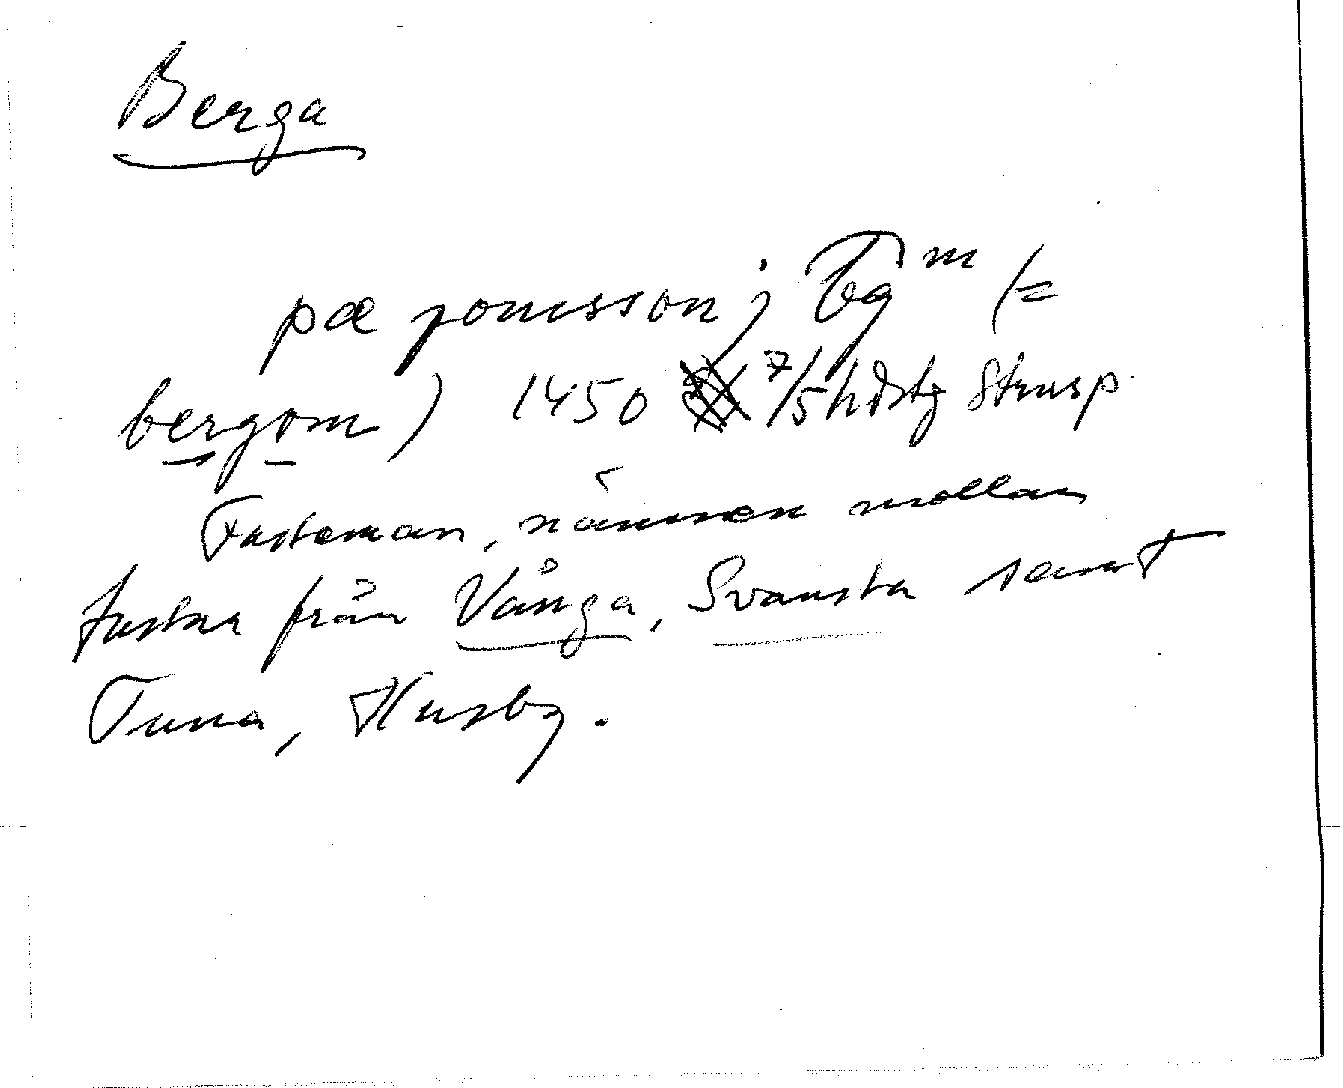 Berga
pæ jonisson j bg^m (=
bergom) 1450 7/5 hdstg Strusp
Fasteman, nämnen mellan
fastar från Vånga, Svansta samt
Tuna, Husby.